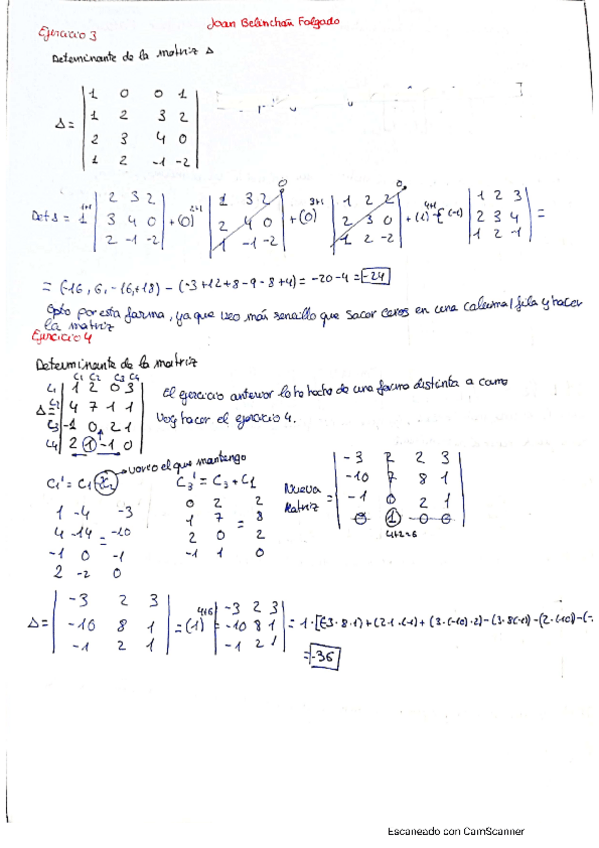 Joan Belinchón Folgado
Ejercicio 3
Determinante de la matriz Δ
Δ =
1 0 0 1
1 2 3 2
2 3 4 0
1 2 -1 -2
Det Δ = 1 1+1 | 2 3 2 | + (0) 2+1 | 1 3 2 | 0 + (0) 3+1 | 1 2 2 | 0 + (1) 4+1 (-1) | 1 2 3 | =
3 4 0 | 2 4 0 | 2 3 0 | 2 3 4
2 -1 -2 | 1 -1 -2 | 1 2 -2 | 1 2 -1
) - (-3+12+8-9-8+4) = -20-4 = -24
Opto por esta forma, ya que veo más sencillo que sacar ceros en una columna/fila y hacer
la matriz
Ejercicio 4
Determinante de la matriz
C1 C2 C3 C4
1 2 0 3
Δ = 4 7 1 1
-1 0 2 1
2 1 -1 0
El ejercicio anterior lo he hecho de una forma distinta a como
voy hacer el ejercicio 4.
valor el que mantengo
C1' = C1
C3' = C3 + C1
1 -4 -3
4 -14 = -10
-1 0 -1
2 -2 0
0 2 2
1 7 = 8
2 0 2
-1 1 0
Nueva
Matriz =
-3 2 2 3
-10 7 8 1
-1 0 2 1
0 1 0 0
4+2=6
Δ = | -3 2 3 | = (1) 4+6 | -3 2 3 | = 1·[(-3·8·1)+(2·1·(-1)+(3·(-10)·2)-(3·8(-1)-(2·(-10)-(-
-10 8 1 | -10 8 1
-1 2 1 | -1 2 1
= -36
Escaneado con CamScanner